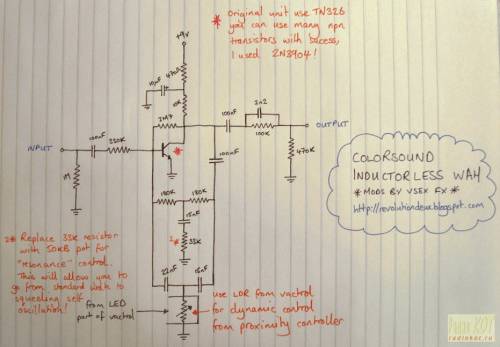 * Original unit use TN326
you can use many npn
transistors with success,
I used 2N3904!
+9V
470R
10µF
10K
2M7
100nF
2n2
100K
OUTPUT
470K
INPUT
100nF
220K
1M
*
100nF
180K
180K
15nF
2*
33K
22nF
15nF
COLORSOUND
INDUCTORLESS WAH
* MODS BY VSEX FX *
http://revolutiondeux.blogspot.com
2* Replace 33K resistor
with 50KB pot for
"resonance" control.
This will allow you to
go from standard wah to
squeeling self
oscillation!
from LED
part of vactrol
use LDR from vactrol
for dynamic control
from proximity controller
radiokot.ru